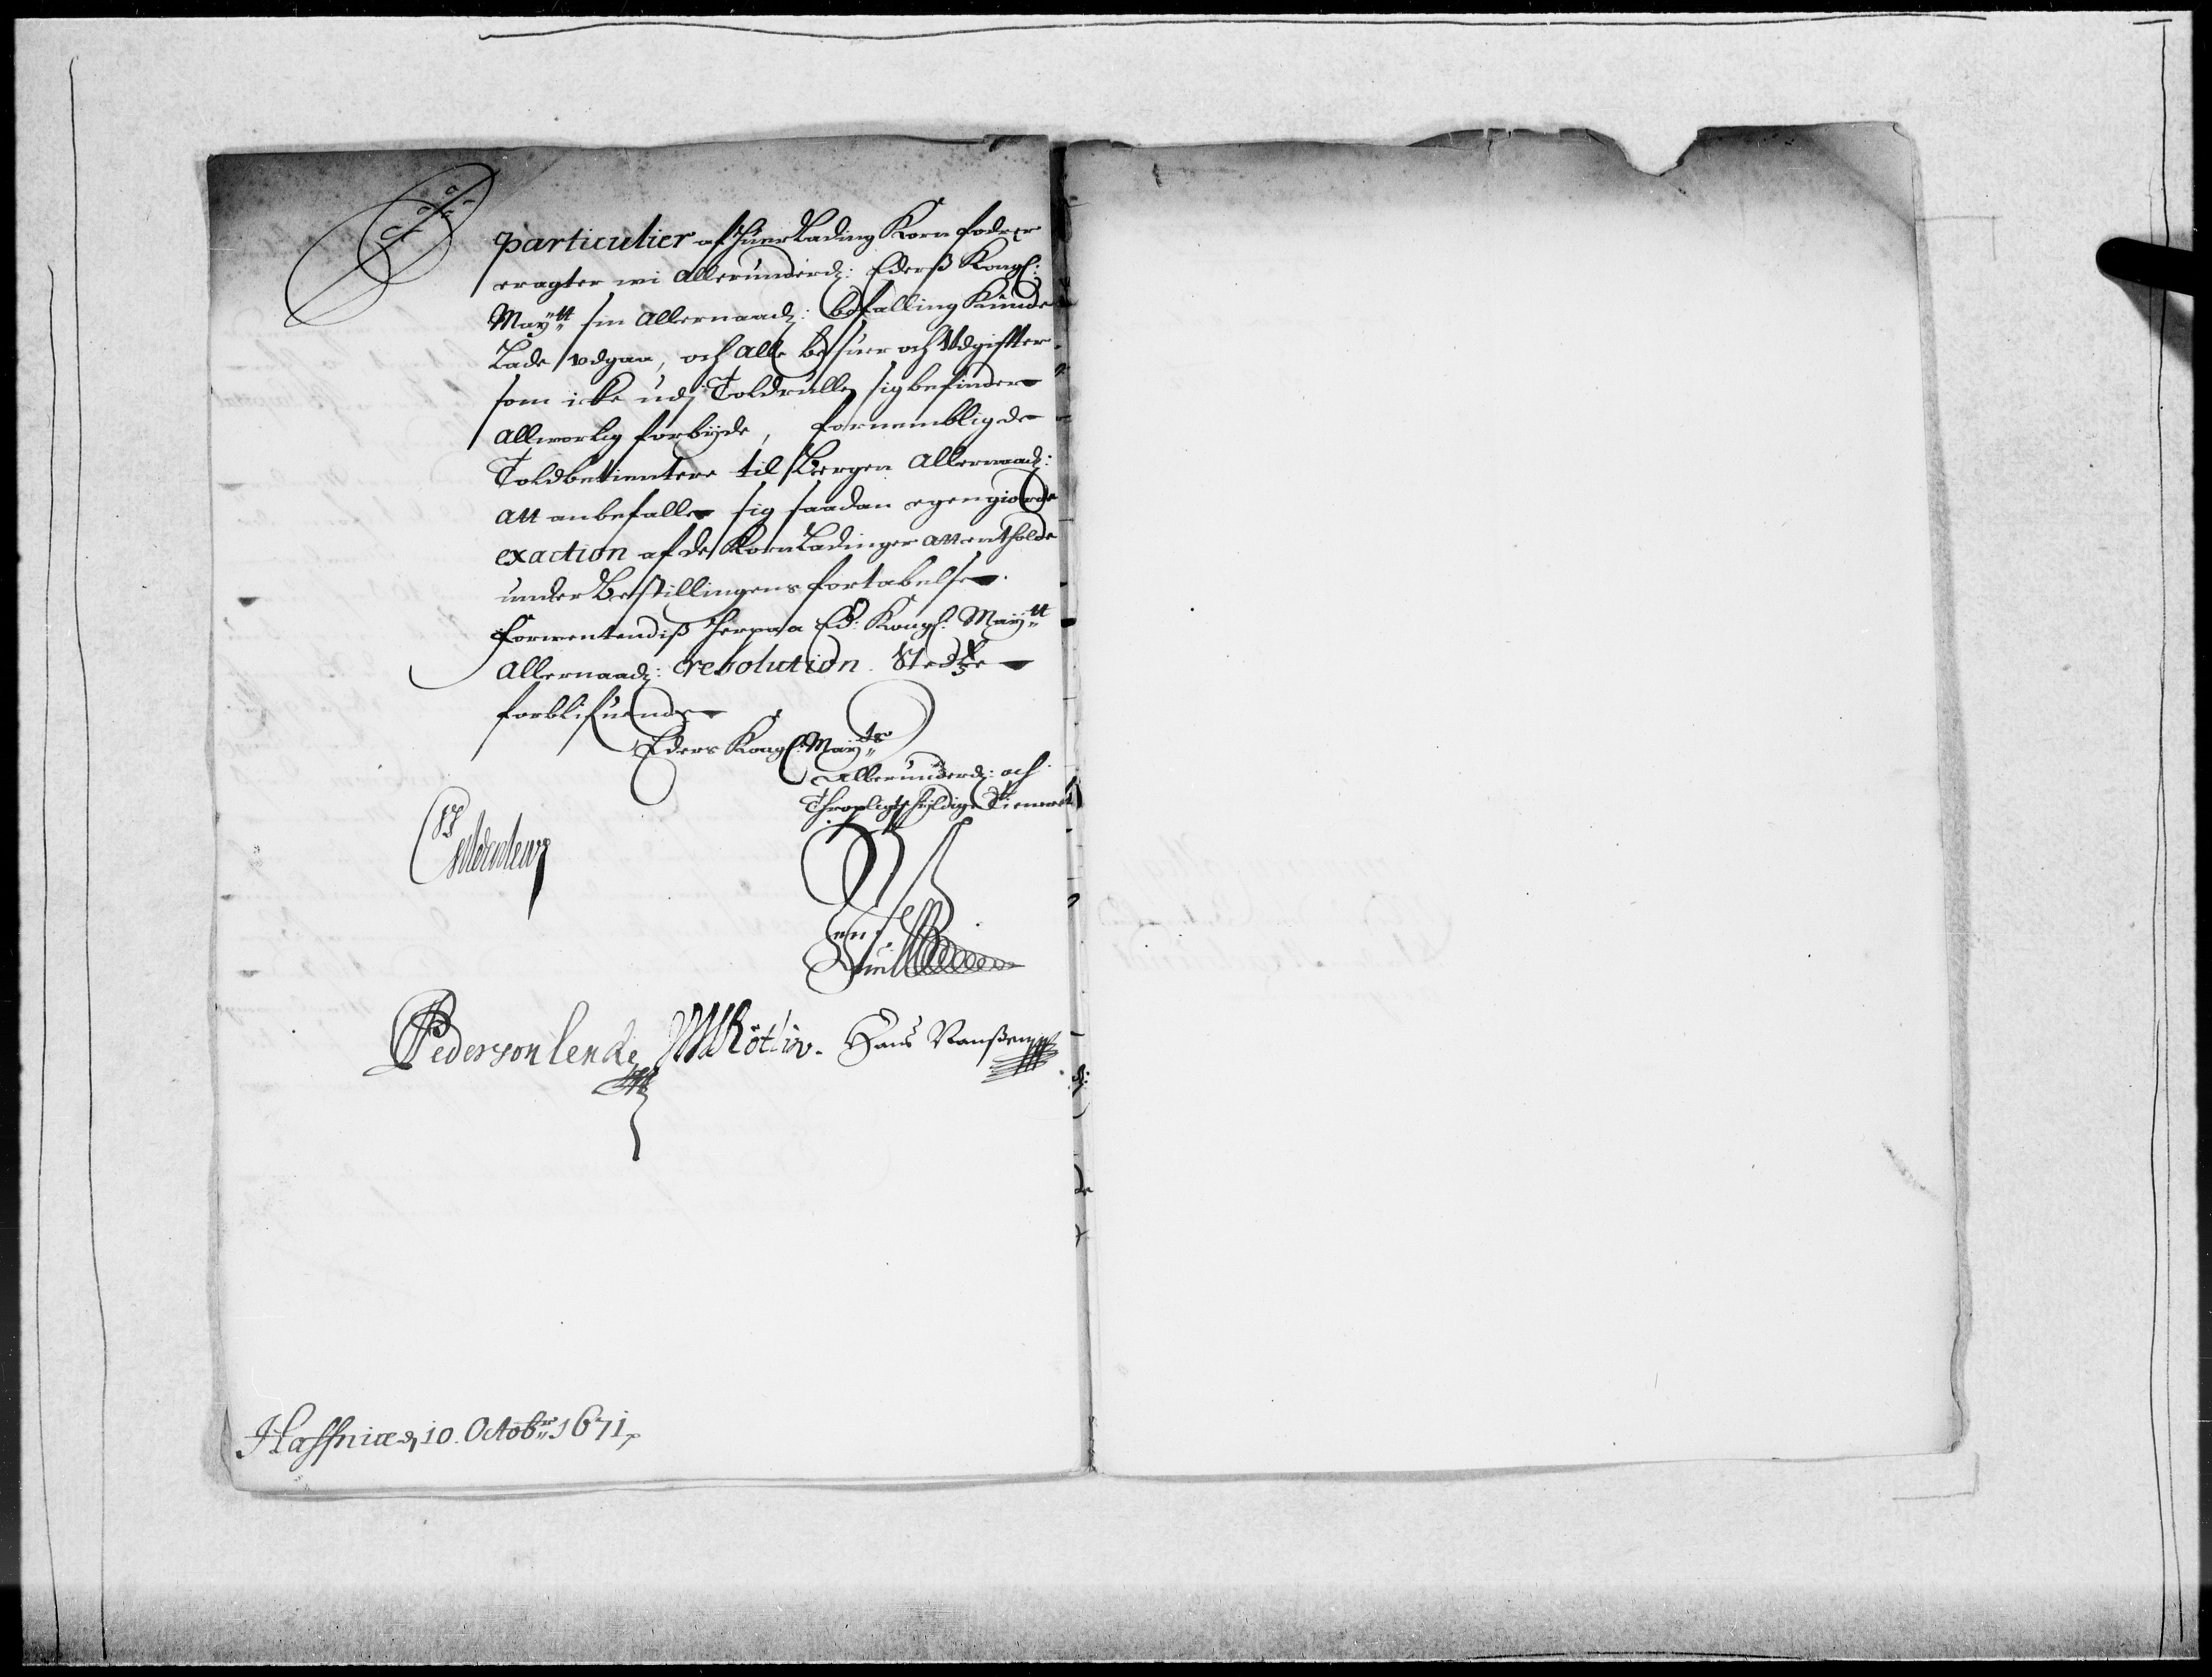 particulier af huer Lading Korn fodrer
eragter wi allerunderd: Ederß Kongl:
Maytt sin allernaad: befalling Kunde
Lade udgaa, och alle besuer och Udgiffter
som icke udj Toldrullen sig befinder
alluorlig forbyde, fornemblig de
Toldbetientere til Bergen allernaad:
att anbefalle sig saadan egengiorde
exaction af de Korn Ladinger att entholde
under Bestillingens fortabelse.
Forwentendiß herpaa Ed: Kongl: Maytt
allernaad: resolution. Stedtze
forblifuende
Eders Kongl: Maytz
allerunderd: och
Thropligtskyldige Tiener
Jens Juel
Pederson Lercke
Hans Nanßen
Haffniæ d 10. Octobr 1671